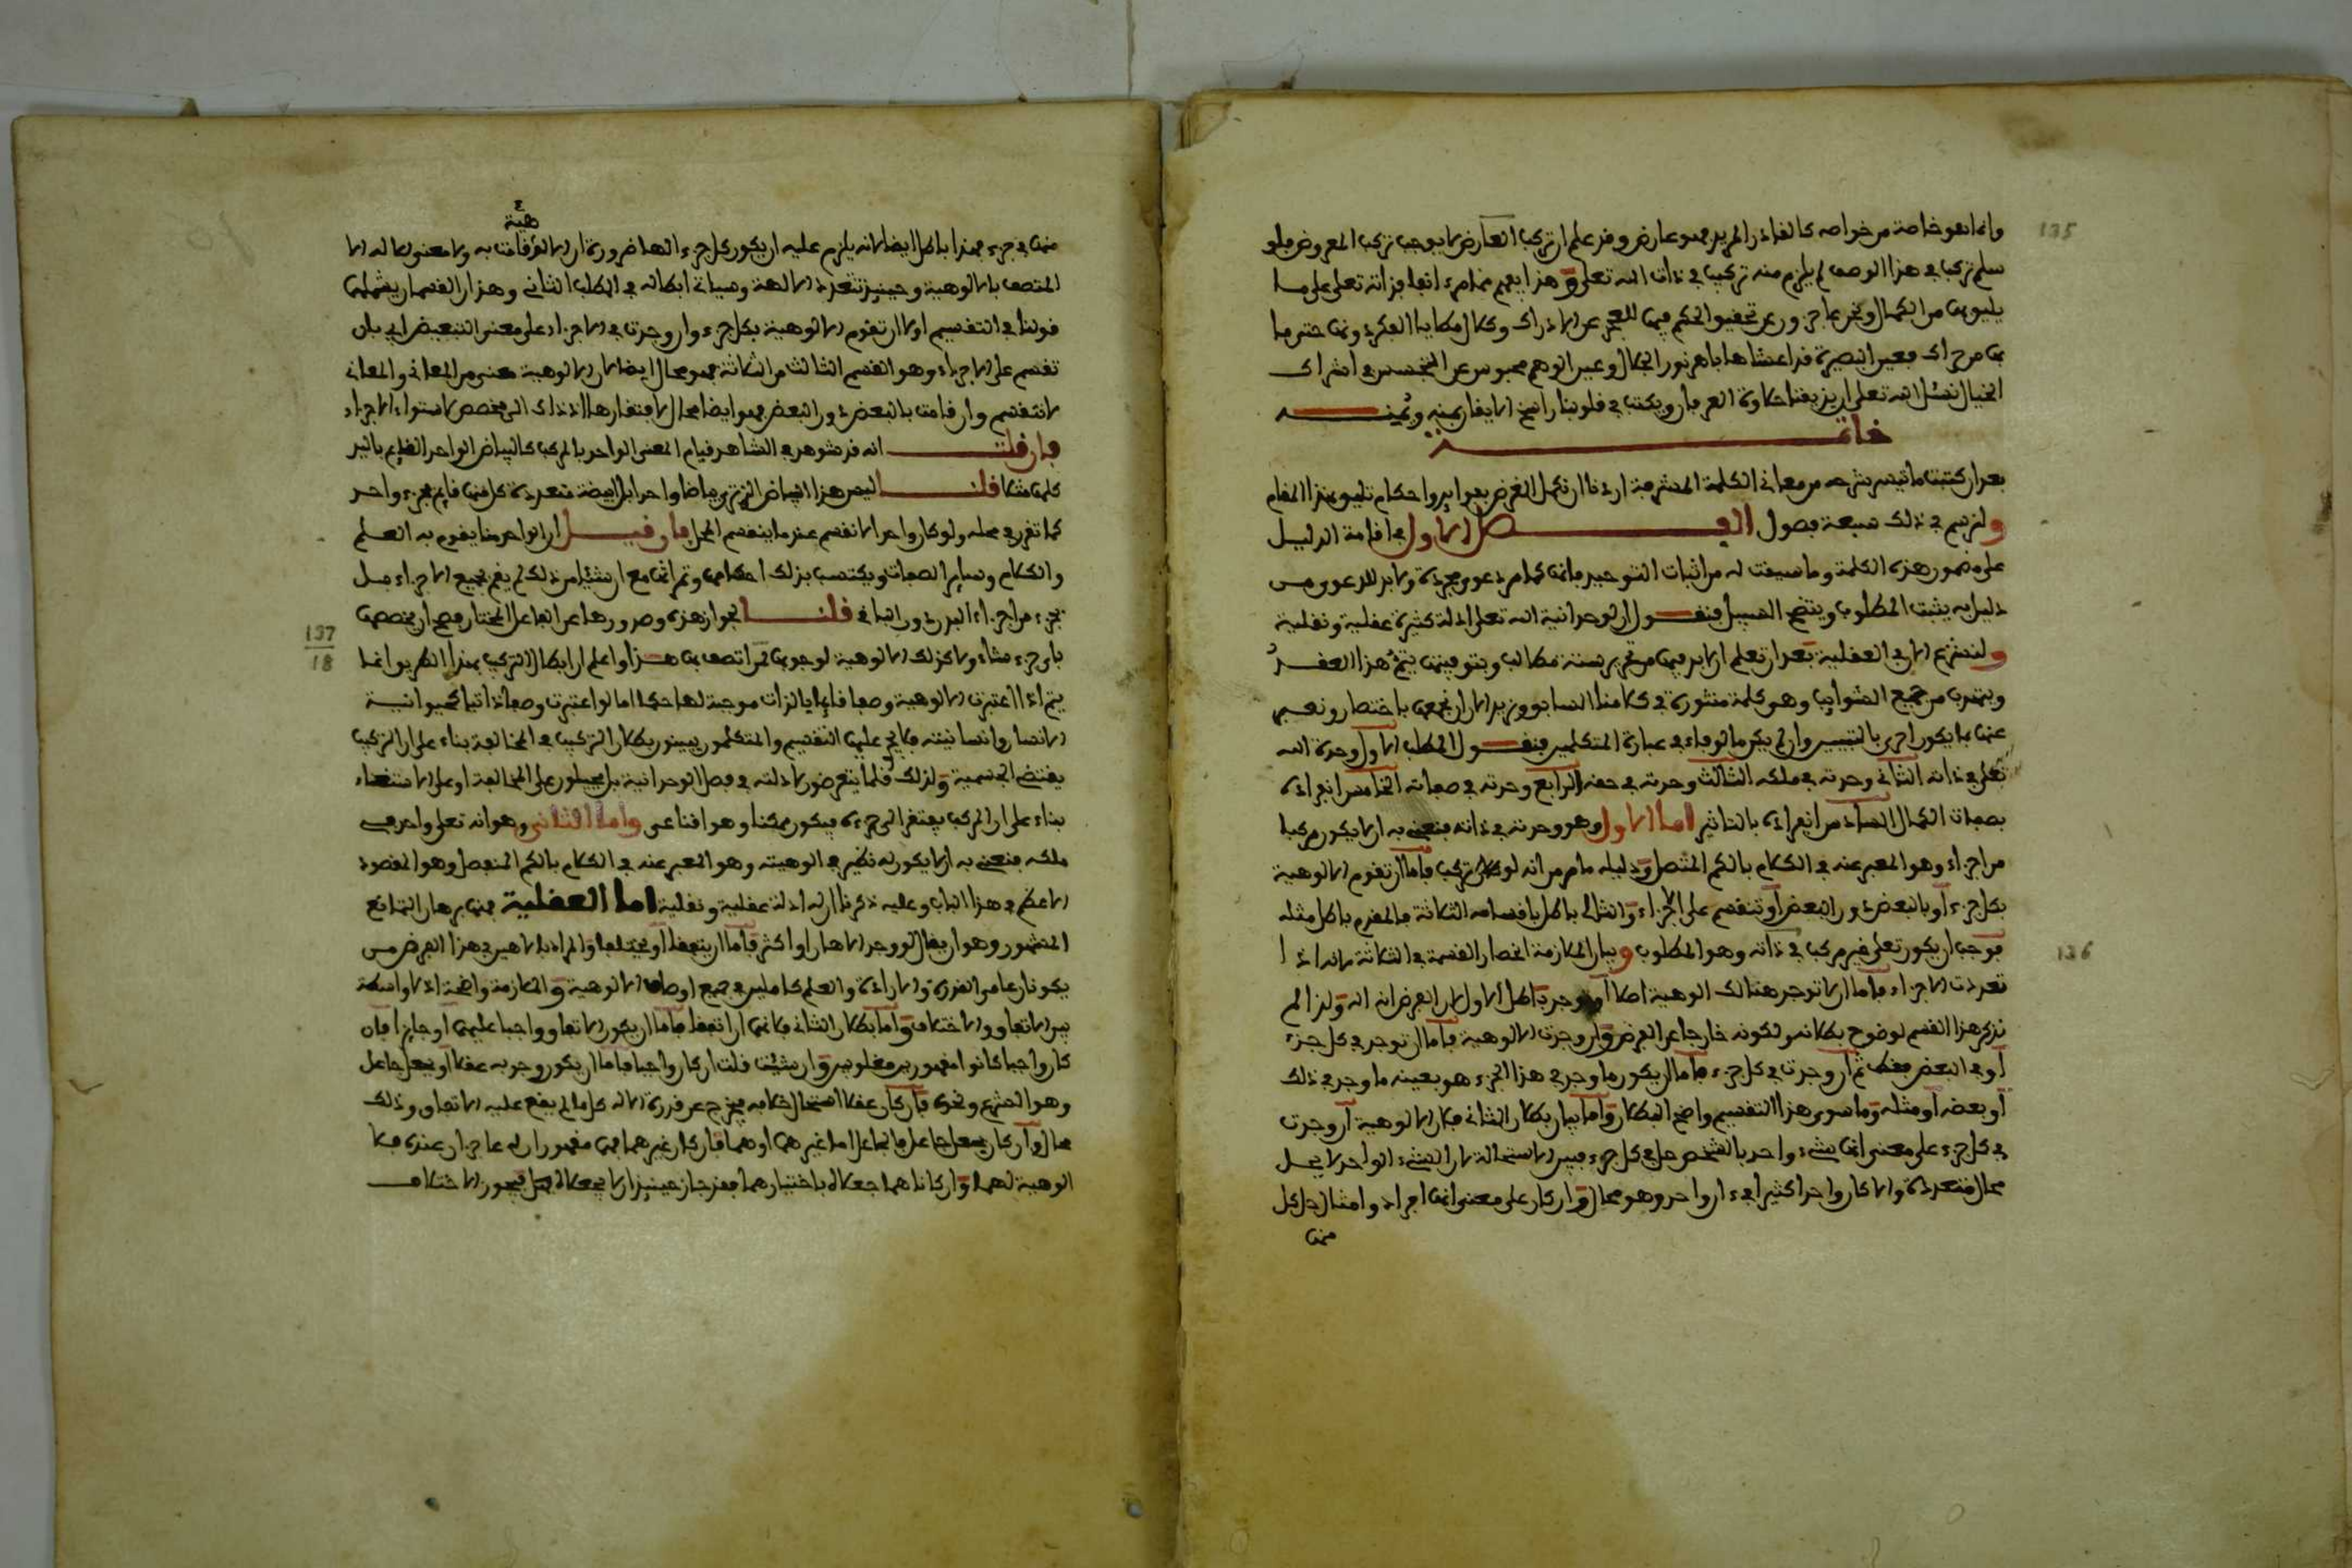 135
وانما هو خاصة من خواصه كالقادر المريد فهو عارض وقد علم ان تركب العارض لا يوجب تركب المعروض فلو
سلم تركب في هذا الوصف لم يلزم منه تركيب في ذات الله تعلى وهذا يعم
يليق من الكمال ونحن عاجزون عن تحقيق الحكم فيها للعجز عن الادراك
فعين البصيرة قد اعشاها باهر نور الجلال وعين الوهم محبوس عن التجسس في اشراك
الخيال نسئل الله تعلى ان يذيقنا حلاوة العرفان ويكتب في قلوبنا راسخ الايقان بمنه ويمنه
خاتمة
بعد ان كتبت ما تيسر شرحه من معاني الكلمة المشرفة اردنا ان نكمل الغرض بفوايد واحكام تليق بهذا المقام
ولنرسم في ذلك سبعة فصول الفصل الاول في اقامة الدليل
على مضمون هذه الكلمة وما سيقت له من اثبات التوحيد فانها كلام دعوى مجردة ولا بد للدعوى من
دليل به يثبت المطلوب ويتضح السبيل فنقول ان لوحدانية الله تعلى ادلة كثيرة عقلية ونقلية
ولنقدم الان العقلية بعد ان تعلم ان لا بد فيها من تحرير ستة مطالب وبتوفيتها يتم هذا العقد
ويتهذب من جميع الشوايب وهو كلمة منثورة في كلامنا السابق ونريد الان ان نجمعها باختصار ونعبر
عنها بما يكون احرى بالتبيين وان لم يكن مالوفا في عبارة المتكلمين فنقول المطلب الاول وحدة الله
تعلى في ذاته الثاني وحدته في ملكه الثالث وحدته في حقه الرابع وحدته في صفاته الخامس انفراده
بصفات الكمال السادس انفراده بالتاثير اما الاول وهو وحدته في ذاته فنعني به ان لا يكون مركبا
من اجزاء وهو المعبر عنه في الكلام بالكم المتصل ودليله ما مر من انه لو كان تركب فاما ان تقوم الالوهية
بكل جزء او بالبعض دون البعض او تنقسم على الاجزاء والتالي باطل باقسامه الثلاثة فالمقدم باطل مثله
فوجب ان يكون تعلى غير مركب في ذاته وهو المطلوب وبيان الملازمة انحصار القسمة في الثلاثة لانه اذا
136
تعددت الاجزاء فاما ان لا توجد هنالك الوهية اصلا او توجد باطل الاول لان الفرض انه اله ولذا لم
نذكر هذا القسم لوضوح بطلانه ولكونه خارجا عن الفرض وان وجدت الالوهية فاما ان توجد في كل جزء
او في البعض فقط ثم ان وجدت في كل جزء فاما ان يكون ما وجد في هذا الجزء هو بعينه ما وجد في ذلك
او بعضه او مثله وما سوى هذا التقسيم واضح البطلان واما بيان بطلان الثاني فلان الالوهية ان وجدت
في كل جزء على معنى انها شيء واحد بالشخص حل في كل جزء فبين الاستحالة لان الشيء الواحد لا يحل
محال متعددة والا كان واحدا كثيرا في ان واحد وهو محال وان كان على معنى انها افراد وامثال حل كل
منها
هية
منها في جزء فهذا باطل ايضا لانه يلزم عليه ان يكون كل جزء الها ضرورة ان الالوهية قامت به ولا معنى للاله الا
المتصف بالالوهية وحينئذ تتعدد الالهة وسياتي ابطاله في المطلب الثاني وهذان القسمان يشملهما
قولنا في التقسيم اولا ان تقوم الالوهية بكل جزء وان وجدت في الاجزاء على معنى التبعيض اي بان
تقسم على الاجزاء وهو القسم الثالث من الثلاثة فهو محال ايضا لان الالوهية معنى من المعاني والمعاني
لا تنقسم وان قامت بالبعض دون البعض فهو ايضا محال لافتقارها اذ ذاك الى مخصص لاستواء الاجزاء
فان قلت انه قد شوهد في الشاهد قيام المعنى الواحد بالمركب كالبياض الواحد القايم باليد
كلها مثلا قلنا ليس هذا البياض الذي ترى بياضا واحدا بل ابيضة متعددة كل منها قايم بجزء واحد
كما تقرر في محله ولو كان واحدا لانقسم عند ما ينقسم المحل فان قيل ان الواحد منا يقوم به العلم
والكلام وساير الصفات ويكتسب بذلك احكامها وتمراتها مع ان شيئا من ذلك لم يقم بجميع الاجزاء بل
بجزء من اجزاء البدن دون الباقي قلنا لجواز هذه وصدورها عن الفاعل المختار فصح ان يخصصها
137
18
باي جزء شاء ولا كذلك الالوهية لوجوبها لمن اتصف بها هذا واعلم ان ابطال التركيب بهذا الطريق انما
يتم اذا اعتبرت الالوهية وصفا قايما بالذات موجبة لها حكما اما لو اعتبرت وصفا ذاتيا كحيوانية
الانسان وانسانيته فلا يجري عليها التقسيم والمتكلمون يبينون بطلان التركيب في المخالفة بناء على ان التركيب
يقتضي الجسمية ولذلك قلما يتعرضون لادلته في فصل الوحدانية بل يحيلون على المخالفة او على الاستغناء
بناء على ان المركب يفتقر الى جزءه فيكون ممكنا وهو اقناعي واما الثاني وهو انه تعلى واحد في
ملكه فنعني به ان لا يكون له نظير في الوهيته وهو المعبر عنه في الكلام بالكم المنفصل وهو المقصود
الاعظم في هذا الباب وعليه ذكرنا ان له ادلة عقلية ونقلية اما العقلية فمنها برهان التمانع
المشهور وهو ان يقال لو وجد الاهان او اكثر فاما ان يتفقا او يختلفا والمراد بالالاهين في هذا الفرض من
يكونان عامي القدرة والارادة والعلم كاملين في جميع اوصاف الالوهية والملازمة واضحة اذ لا واسطة
بين الاتفاق والاختلاف واما بطلان الثاني فلانهما ان اتفقا فاما ان يكون الاتفاق واجبا عليهما او جايزا فان
كان واجبا كانوا مقهورين مغلوبين وان شئت قلت ان كان واجبا فاما ان يكون وجوبه عقلا او بجعل جاعل
وهو الشرع ونحوه فان كان عقلا استحال خلافه فيخرج عن قدرة الاله كل ما لم يقع عليه الاتفاق وذلك
محال وان كان بجعل جاعل فالجاعل اما غيرهما او هما فان كان غيرهما فهما مقهوران له عاجزان عنده فلا
الوهية لهما وان كانا هما جعلاه باختيارهما فقد جاز حينئذ ان لا يجعلاه بل فيجوز الاختلاف